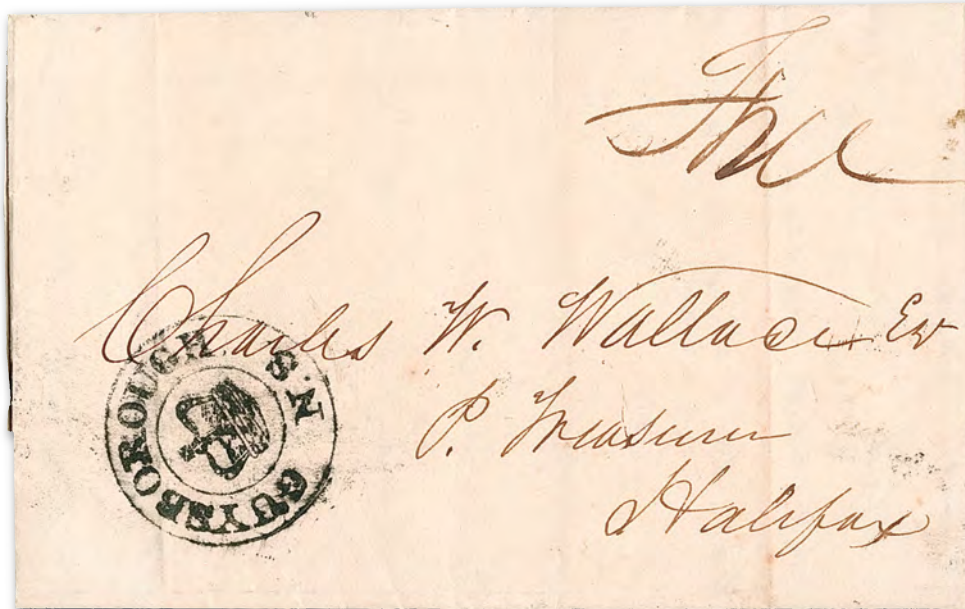 Free
Charles W. Wallace Esqr
P. Treasurer
Halifax
GUYSBOROUGH N.S